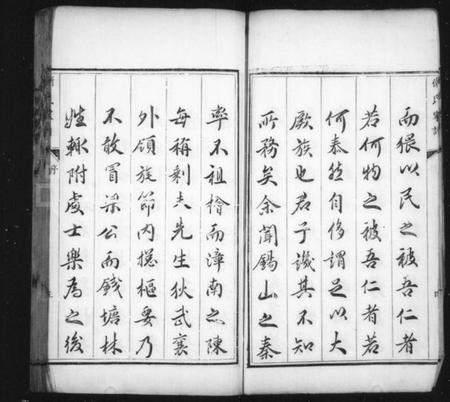 而猥以民之被吾仁者
若何物之被吾仁者若
何泰然自侈謂足以大
厥族也君子譏其不知
所務矣余聞錫山之秦
率不祖檜而漳南之陳
每稱剩夫先生狄武襄
外領旄節内摠樞要乃
不敢冒梁公而錢塘林
逋輙附處士樂為之後